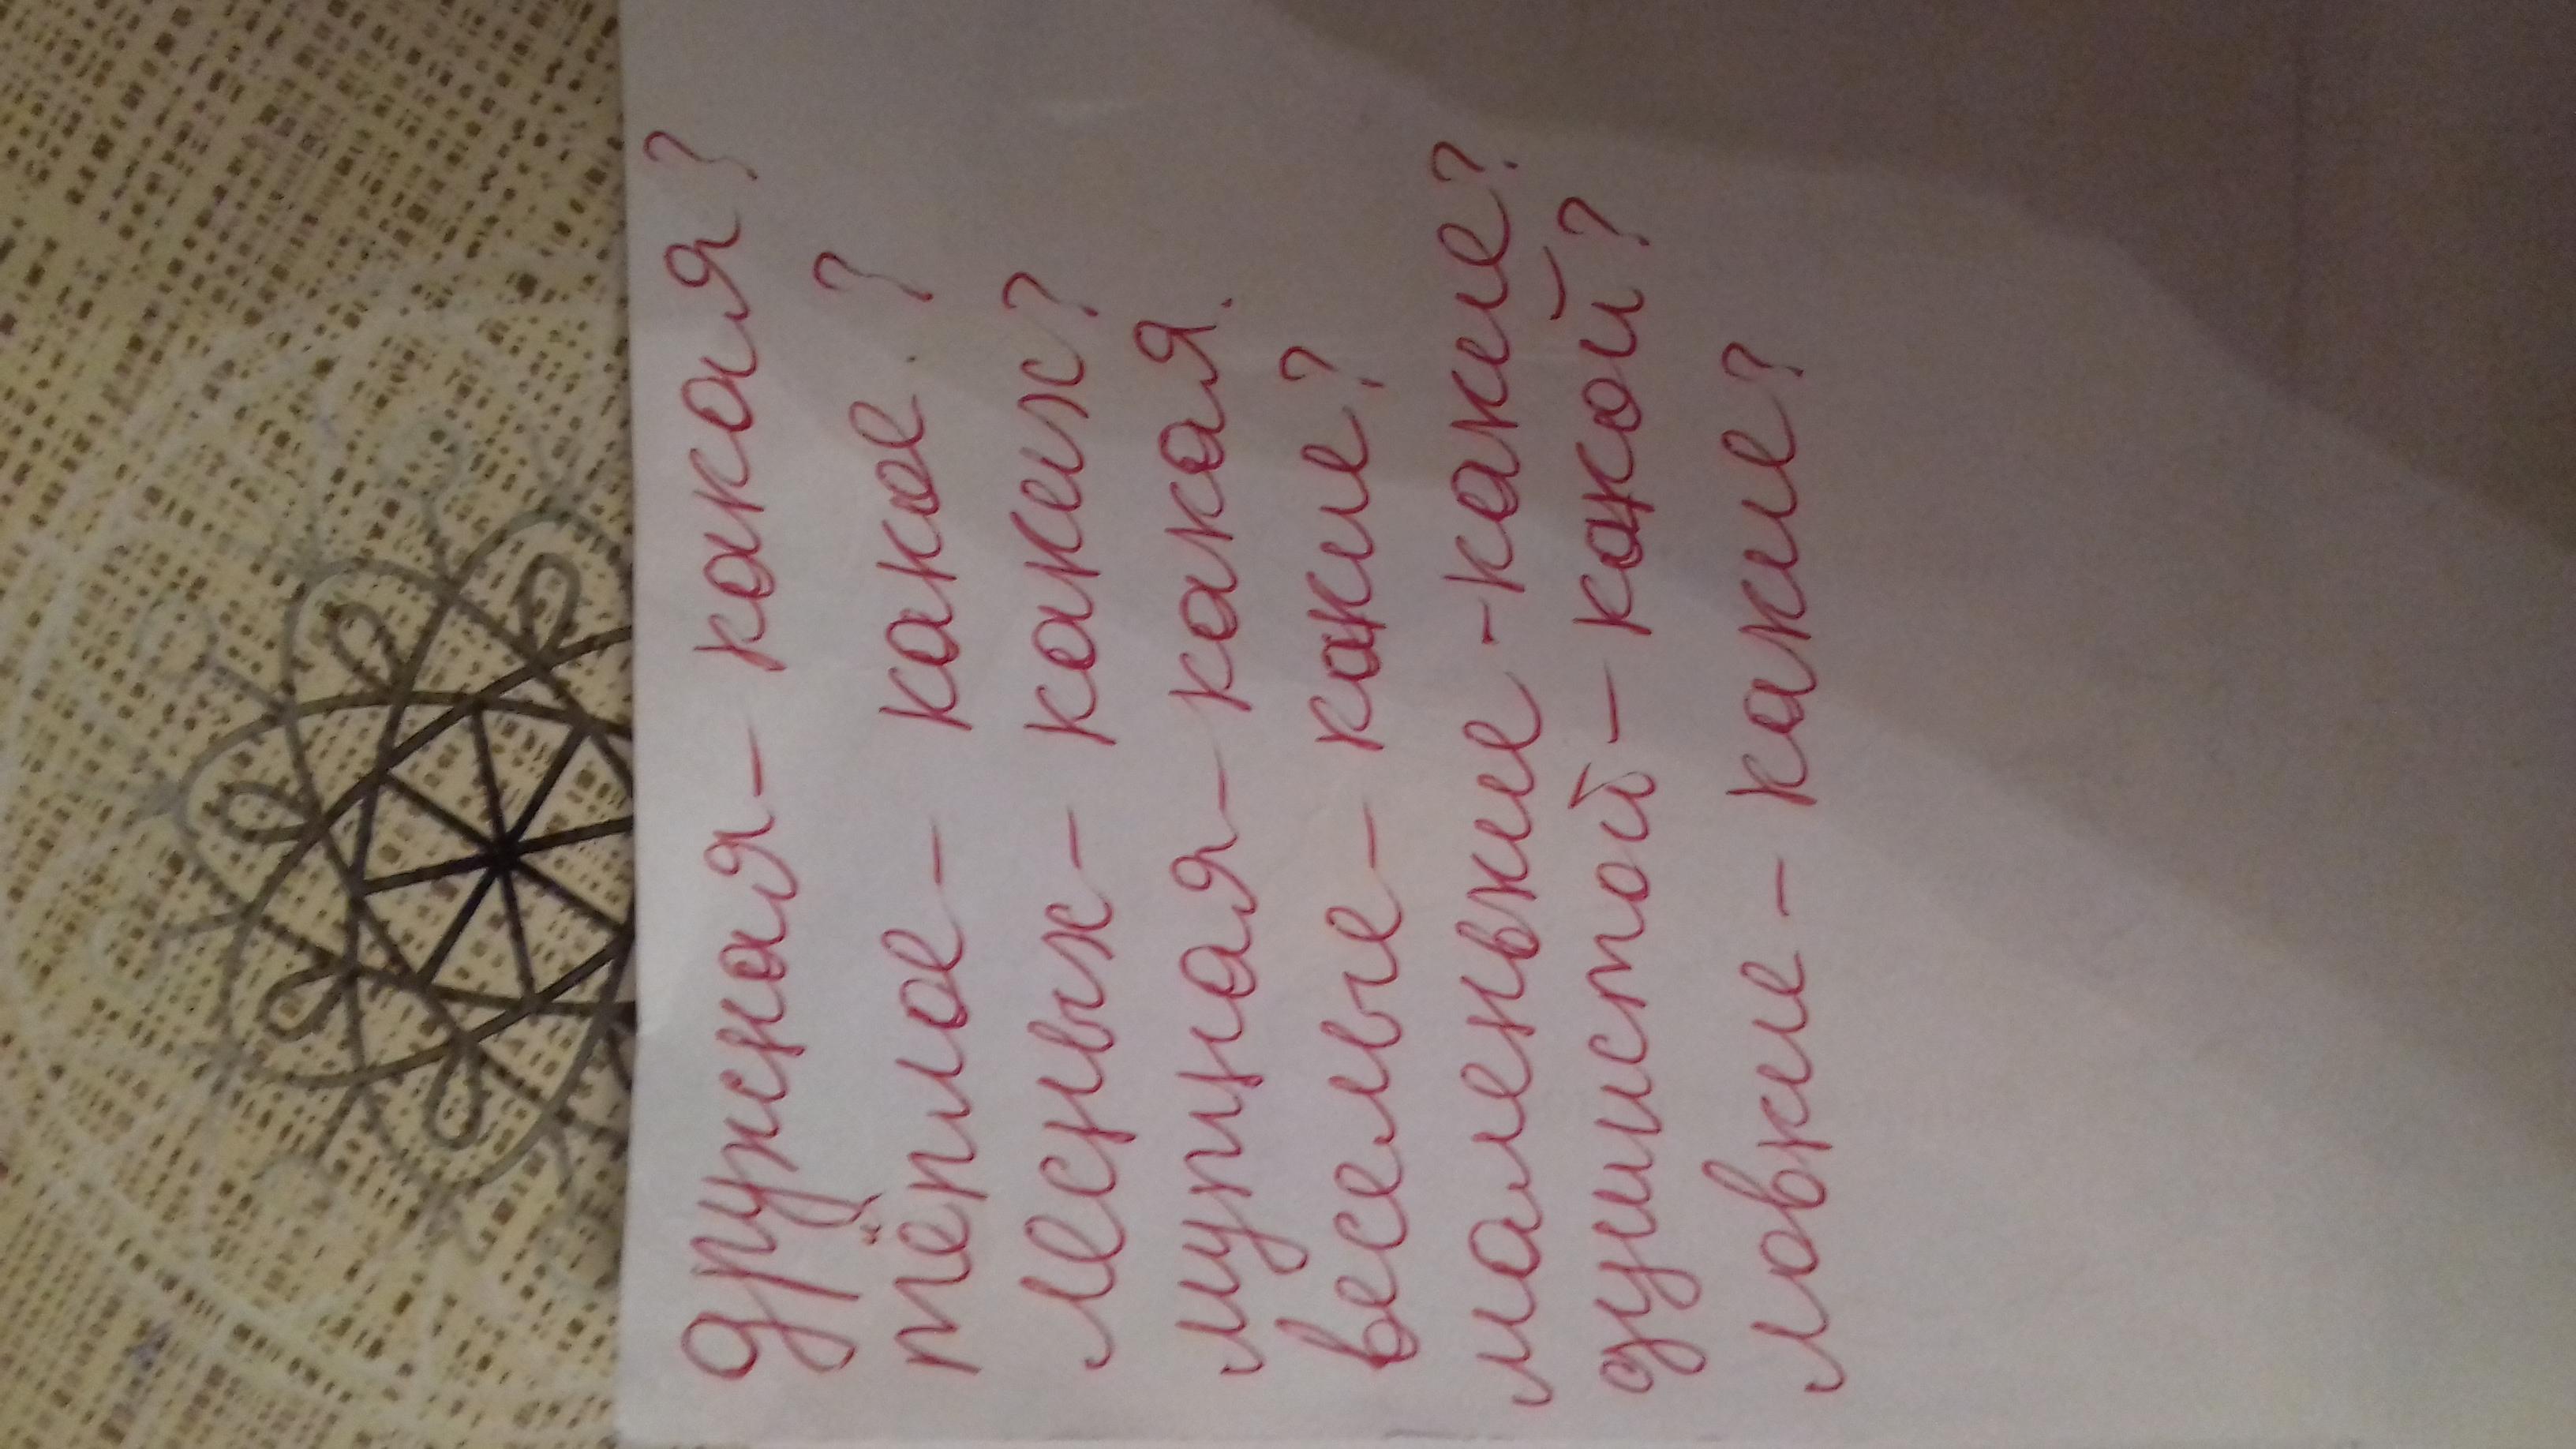 дружная - какая?
тёплое - какое?
лесных - каких?
мутная - какая.
веселые - какие?
маленькие - какие?
душистой - какой?
ловкие - какие?